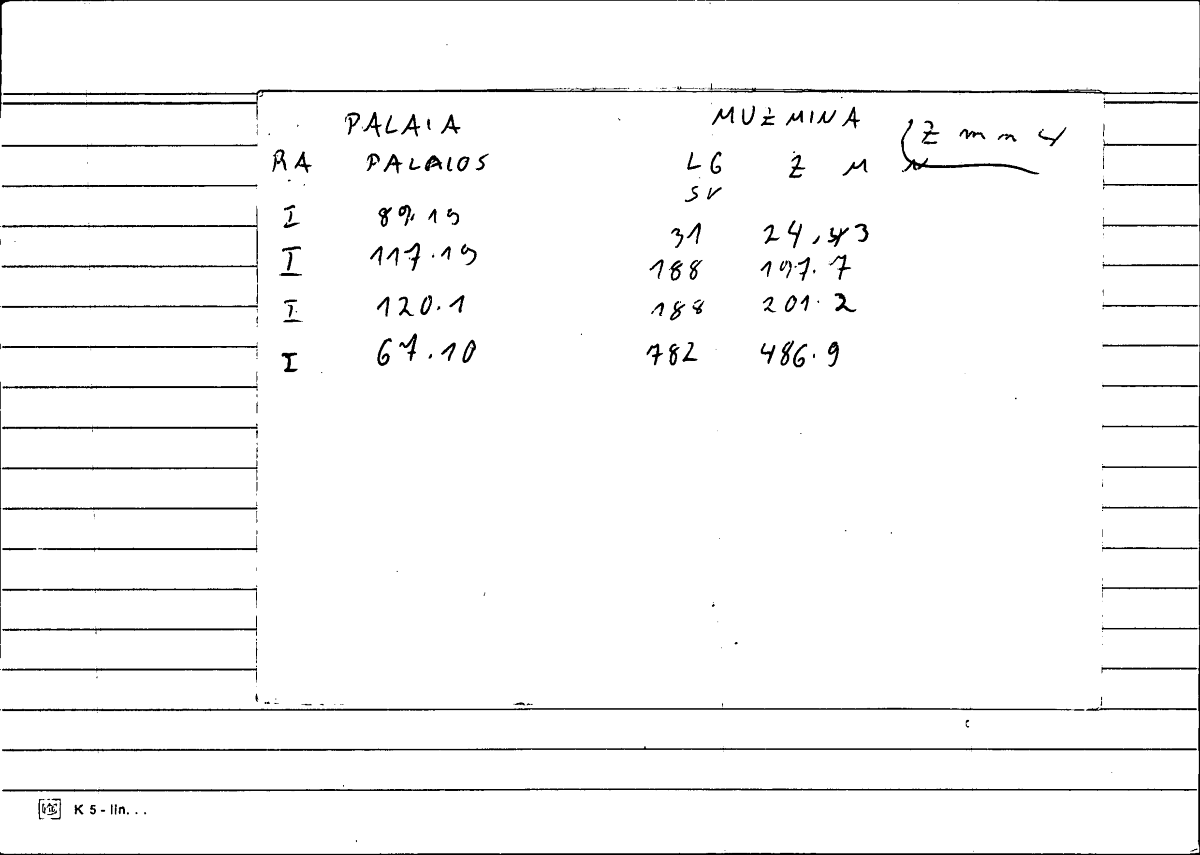 PALAIA MUŻMINA
RA PALAIOS LG Ż M N
SV
I 89.19 31 24,
I 117.19 188 197.7
I 120.1 188 201.2
I 67.10 782 486.9
K 5 - lin...